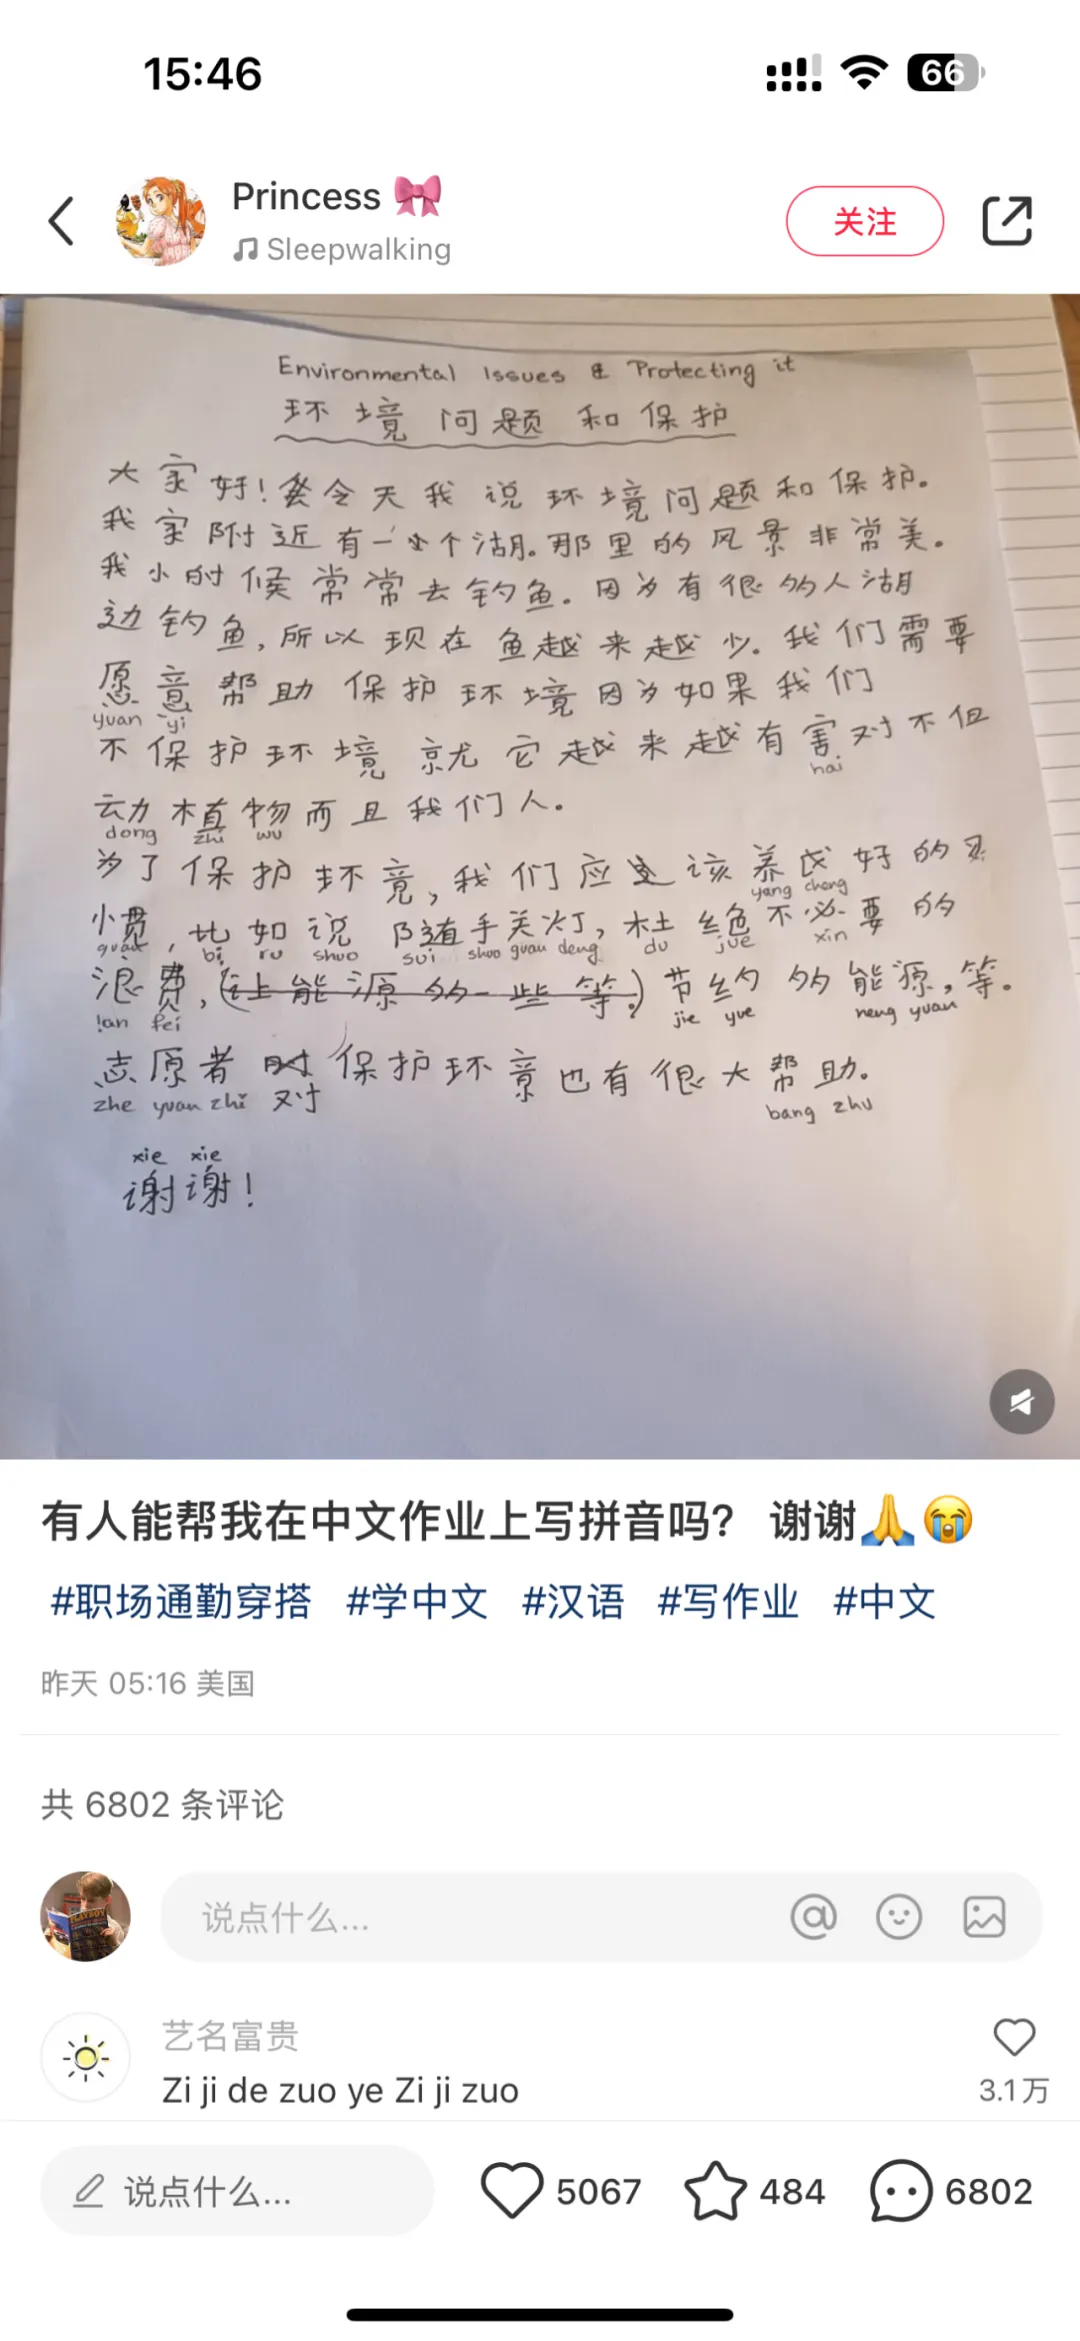 15:46
66
Princess 🎀
Sleepwalking
关注
Environmental Issues & Protecting it
环境问题和保护
大家好！今天我说环境问题和保护。
我家附近有一个湖。那里的风景非常美。
我小时候常常去钓鱼。因为有很多人湖
边钓鱼，所以现在鱼越来越少。我们需要
愿意帮助保护环境因为如果我们
yuan yi
不保护环境就它越来越有害对不但
hai
动植物而且我们人。
dong zhi wu
为了保护环竟，我们应该养成好的习
yang cheng
惯，比如说随手关灯，杜绝不必要的
guan bi ru shuo sui shuo guan deng du jue xin
浪费，（让能源多一些等。）节约多能源，等。
lan fei jie yue neng yuan
志愿者对保护环竟也有很大帮助。
zhe yuan zhi bang zhu
xie xie
谢谢！
有人能帮我在中文作业上写拼音吗？ 谢谢🙏😭
#职场通勤穿搭 #学中文 #汉语 #写作业 #中文
昨天 05:16 美国
共 6802 条评论
说点什么...
艺名富贵
Zi ji de zuo ye Zi ji zuo
3.1万
说点什么...
5067
484
6802